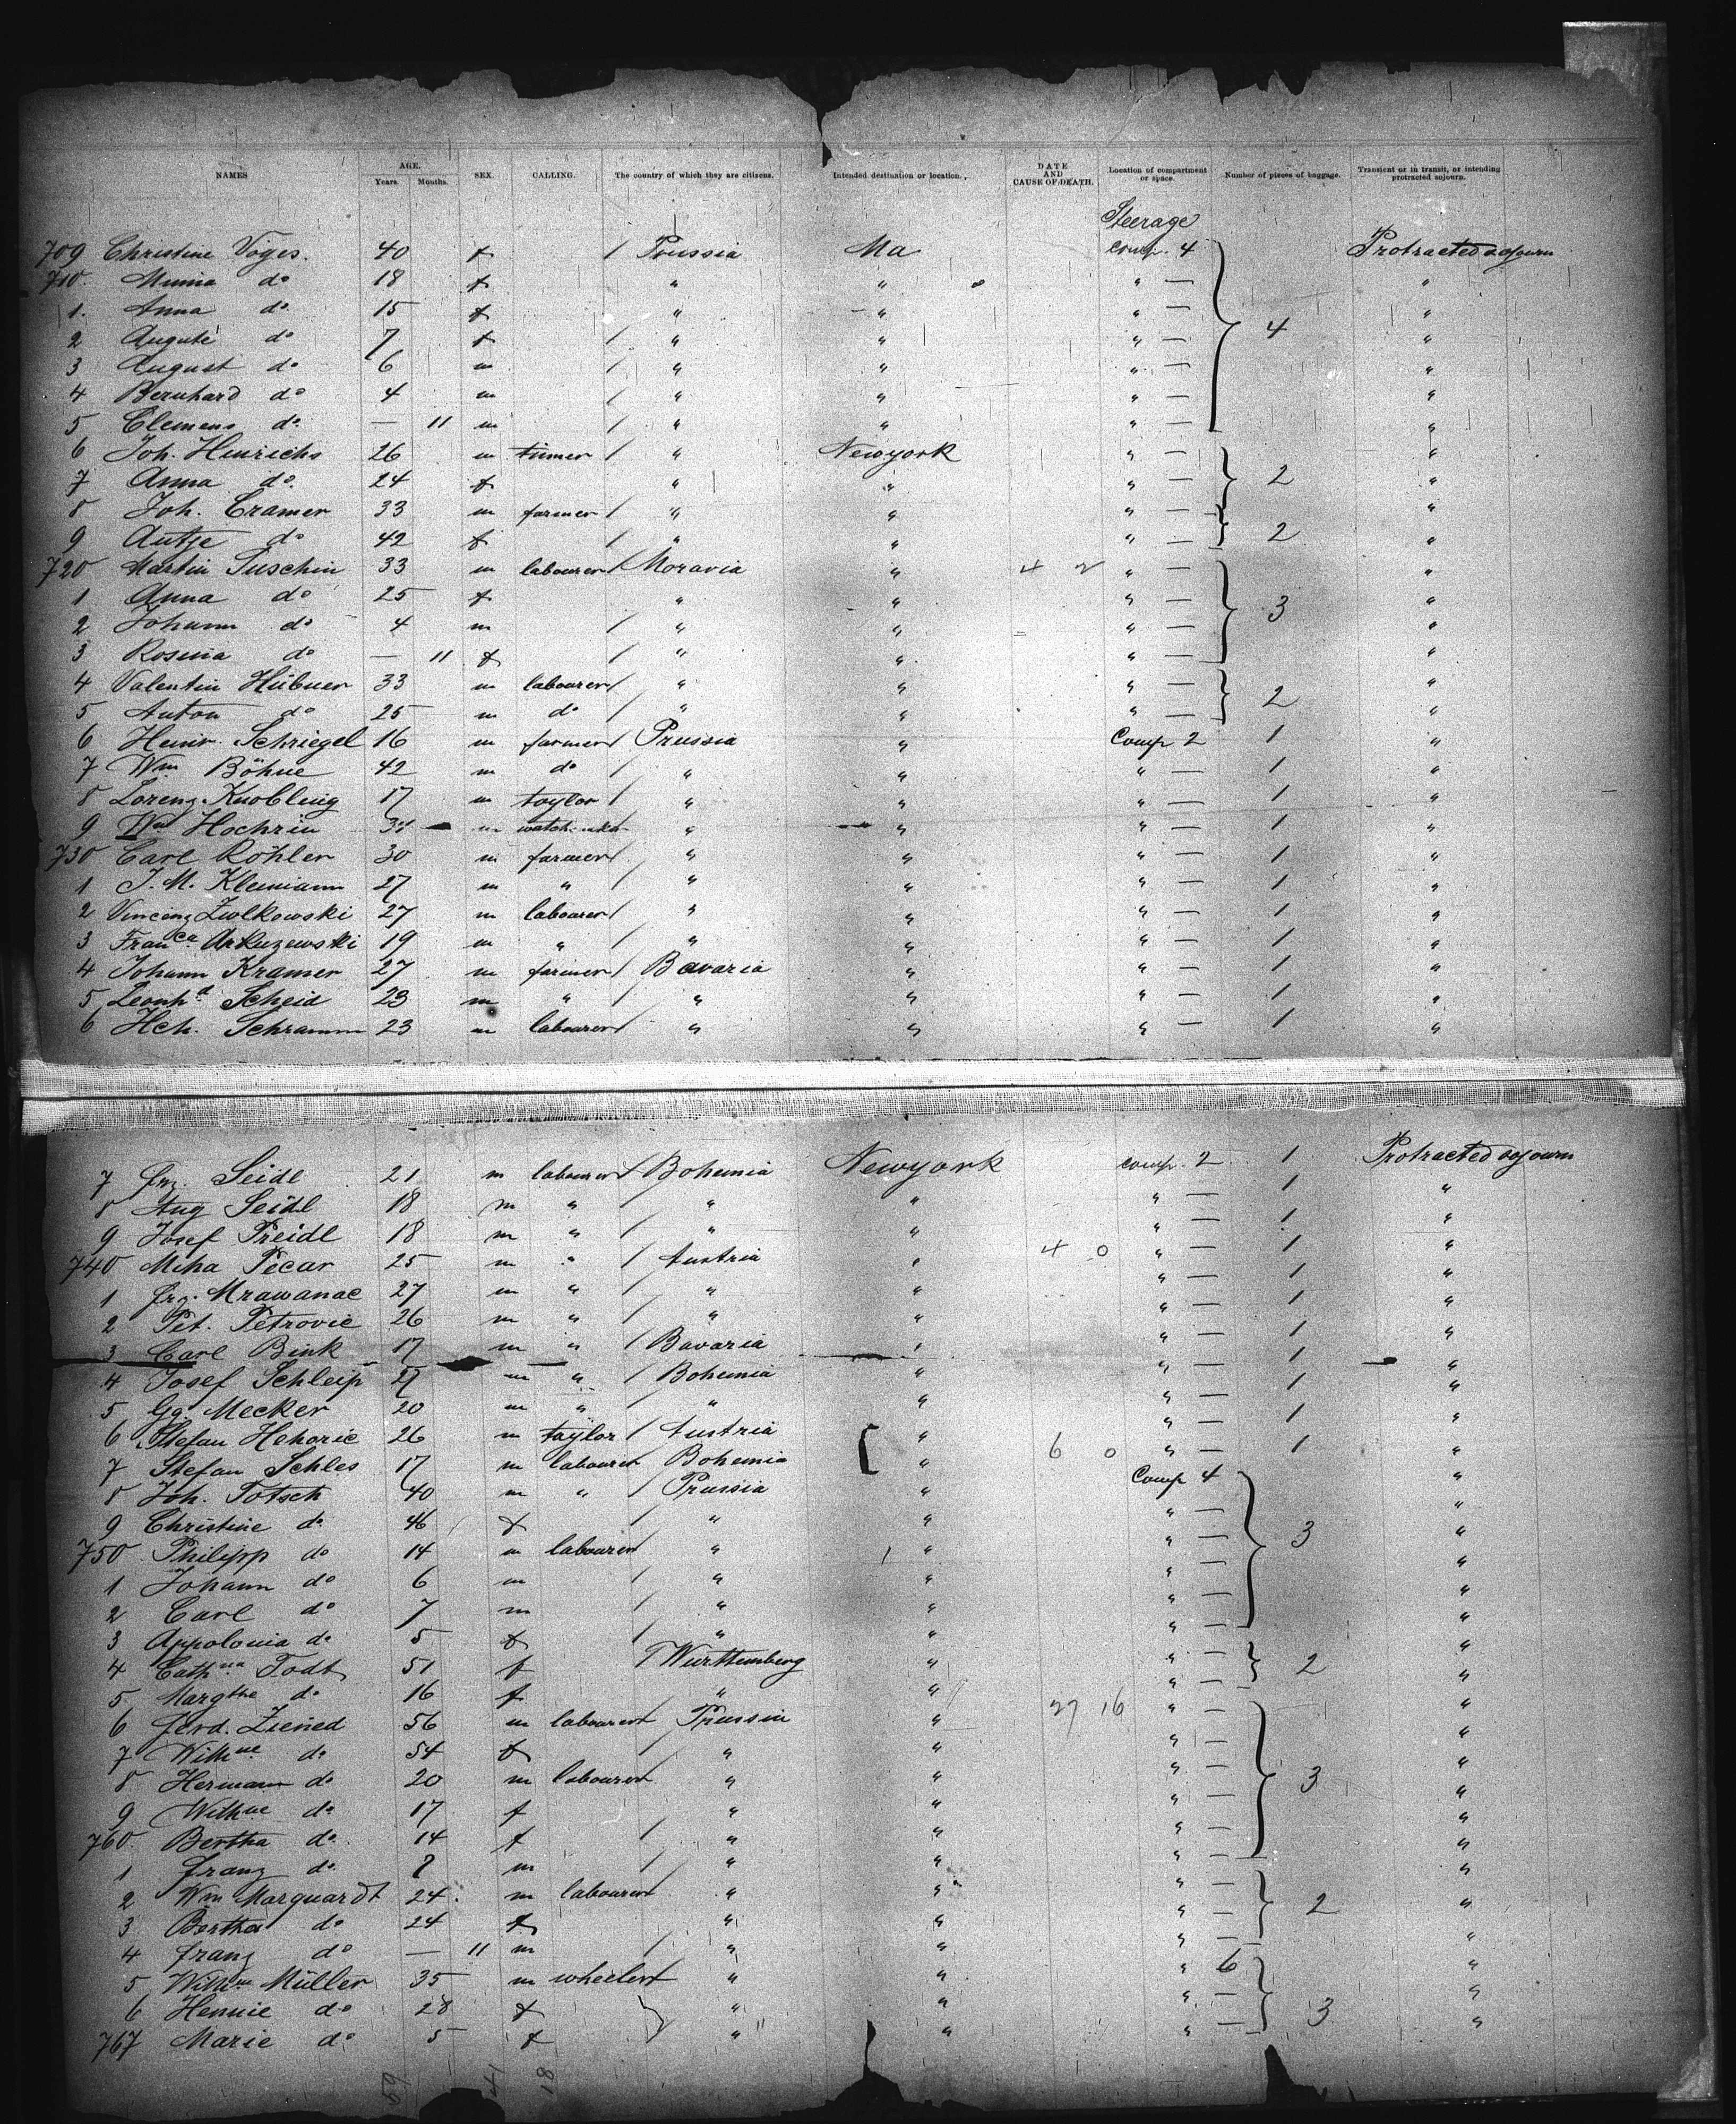 NAMES AGE. Years. Months. SEX. CALLING. The country of which they are citizens. Intended destination or location. DATE AND CAUSE OF DEATH. Location of compartment or space. Number of pieces of baggage. Transient or in transit, or intending protracted sojourn.
Steerage
709 Christine Voges. 40 f / Prussia Ma comp. 4 Protracted sojourn
710. Minna do 18 f " " " — "
1. Anna do 15 f " " " — "
2 Auguste do 7 f / " " " — 4 "
3 August do 6 m / " " " — "
4 Bernhard do 4 m / " " " — "
5 Clemens do — 11 m / " " " — "
6 Joh. Hinrichs 26 m / " Newyork " — "
7 Anna do. 24 f " " " — 2 "
8 Joh. Cramer 33 m farmer / " " " — "
9 Antje do 42 f / " " " — 2 "
720 Martin Tuschin 33 m labourer / Moravia " 4 2 " — "
1 Anna do 25 f " " " — "
2 Johann do 4 m / " " " — 3 "
3 Rosina do — 11 f / " " " — "
4 Valentin Hübner 33 m labourer / " " " — "
5 Anton do 25 m do / " " " — 2 "
6 Heinr. Schriegel 16 m farmer / Prussia " Comp 2 1 "
7 Wm Böhne 42 m do / " " " — 1 "
8 Lorenz Knobling 17 m taylor / " " " — 1 "
9 Wm Hochrin m " " " — 1 "
730 Carl Köhler 30 m farmer / " " " — 1 "
1 J. M. Kleimann 27 m " / " " " — 1 "
2 Vincenz Ziolkowski 27 m labourer / " " " — 1 "
3 Franca Arkuzewski 19 m " / " " " — 1 "
4 Johann Kramer 27 m farmer / Bavaria " " — 1 "
5 Leonhd Scheid 23 m " / " " " — 1 "
6 Hch. Schramm 23 m labourer / " " " — 1 "
7 Frz. Seidl 21 m labourer / Bohemia Newyork comp. 2 1 Protracted sojourn
8 Aug Seidl 18 m " / " " " — 1 "
9 Josef Preidl 18 m " / " " " — 1 "
740 Miha Pecar 25 m " / Austria " 4 0 " — 1 "
1 Frz. Mrawanac 27 m " / " " " — 1 "
2 Pet. Petrovic 26 m " / " " " — 1 "
3 Carl Bink 17 m " / Bavaria " " — 1 "
4 Josef Schleip 27 m " / Bohemia " " — 1 "
5 Gg. Mecker 20 m " " " " — 1 "
6 Stefan Hehoric 26 m taylor / Austria " " — 1 "
7 Stefan Schles 17 m labourer Bohemia " 6 0 " — 1 "
8 Joh. Totsch 40 m " / Prussia " Comp 4 "
9 Christine do 46 f / " " " — "
750 Philipp do 14 m labourer " " " — 3 "
1 Johann do 6 m / " " " — "
2 Carl do 7 m / " " " — "
3 Appolonia do 5 f / " " " — "
4 Cathna Todt 51 f / Württemberg " " — 2 "
5 Margthe do 16 f " " " — "
6 Ferd. Ziened 56 m labourer Prussia " 27 16 " — "
7 Wilhne do 54 f / " " " — "
8 Hermann do 20 m labourer " " " — 3 "
9 Wilhne do 17 f " " " — "
760. Bertha do 14 f / " " " — "
1 Franz do. m / " " " — "
2 Wm Marquardt 24 m labourer " " " — "
3 Bertha do 24 f " " " — 2 "
4 Franz do — 11 m / " " " — "
5 Wilhm Müller 35 m wheeler " " " 6 "
6 Hennie do 28 f " " " — "
767 Marie do 5 f " " " — 3 "
59 41 18